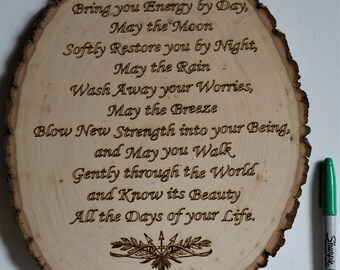 Bring you Energy by Day,
May the Moon
Softly Restore you by Night,
May the Rain
Wash Away your Worries,
May the Breeze
Blow New Strength into your Being,
and May you Walk
Gently through the World
and Know its Beauty
All the Days of your Life.
Sharpie